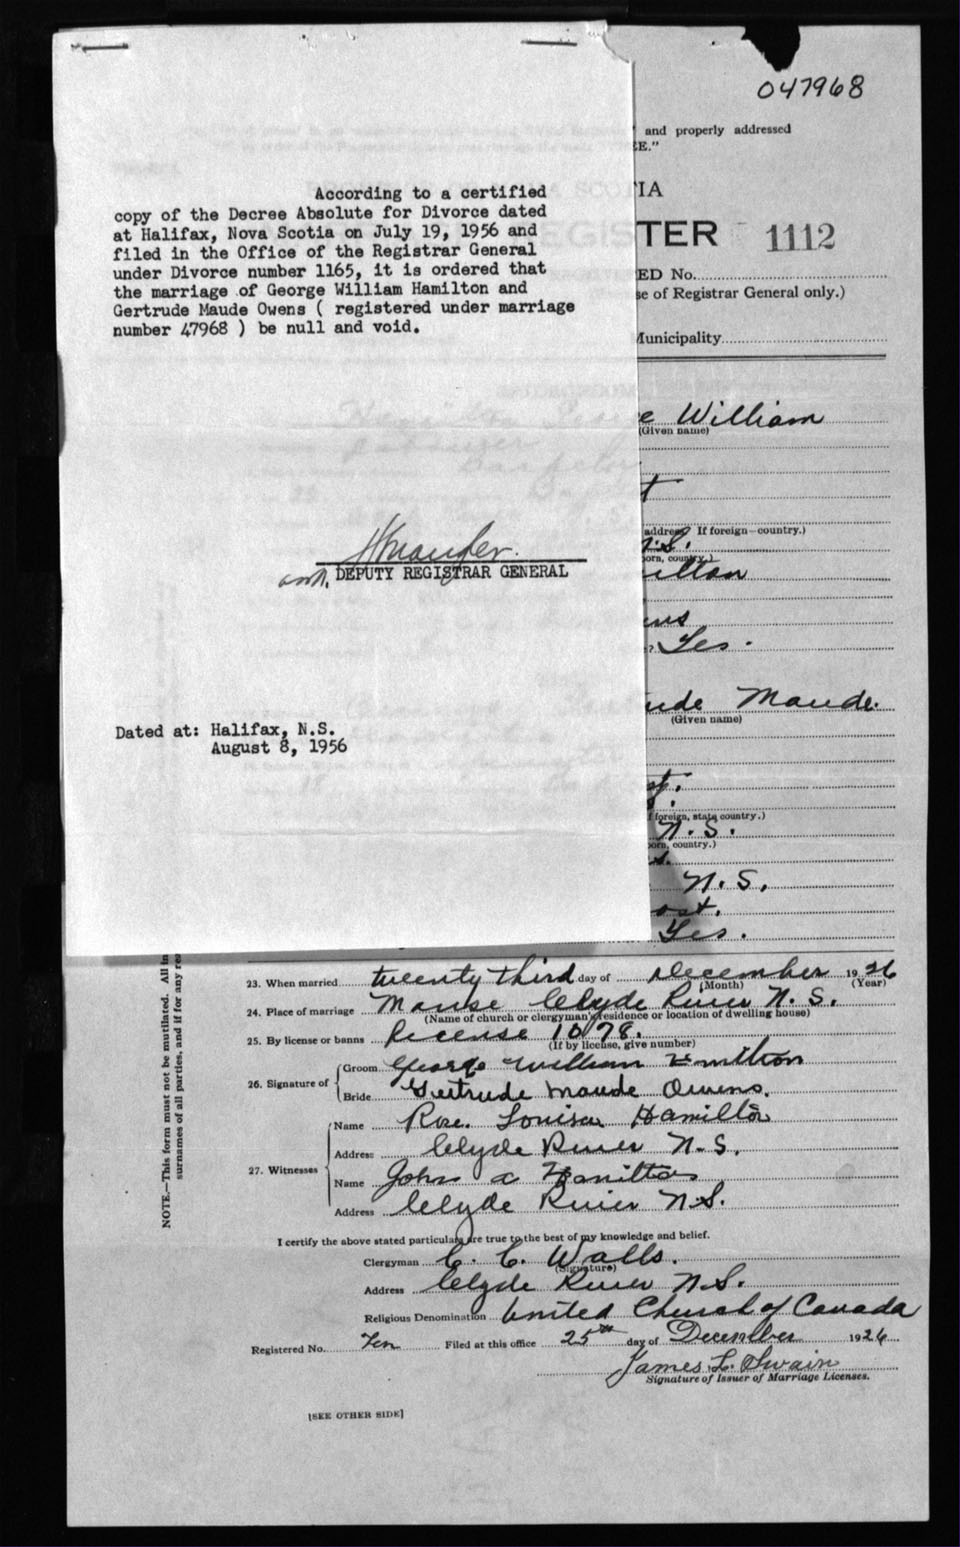 047968
" and properly addressed
EE."
According to a certified
copy of the Decree Absolute for Divorce dated
at Halifax, Nova Scotia on July 19, 1956 and
filed in the Office of the Registrar General
under Divorce number 1165, it is ordered that
the marriage of George William Hamilton and
Gertrude Maude Owens ( registered under marriage
number 47968 ) be null and void.
DEPUTY REGISTRAR GENERAL
Dated at: Halifax, N.S.
August 8, 1956
TIA
TER 1112
ED No.
se of Registrar General only.)
Municipality
e William
(Given name)
t
address If foreign—country.)
N.S.
orn, country.)
ilton
ins
? Yes.
ude Maude.
(Given name)
f foreign, state country.)
N.S.
orn, country.)
s.
N.S.
ast.
Yes.
NOTE.—This form must not be mutilated. All in
surnames of all parties, and if for any rea
23. When married twenty third day of December 1926
(Month) (Year)
24. Place of marriage Manse Clyde River N.S.
(Name of church or clergyman's residence or location of dwelling house)
25. By license or banns License 1078.
(If by license, give number)
26. Signature of
Groom George William Hamilton
Bride Gertrude Maude Owens.
27. Witnesses
Name Rose Louisa Hamilton
Address Clyde River N.S.
Name John a Hamilton
Address Clyde River N.S.
I certify the above stated particulars are true to the best of my knowledge and belief.
Clergyman C. C. Walls.
(Signature)
Address Clyde River N.S.
Religious Denomination United Church of Canada
Registered No. Ten Filed at this office 25th day of December 1926
James L. Swain
Signature of Issuer of Marriage Licenses.
[SEE OTHER SIDE]